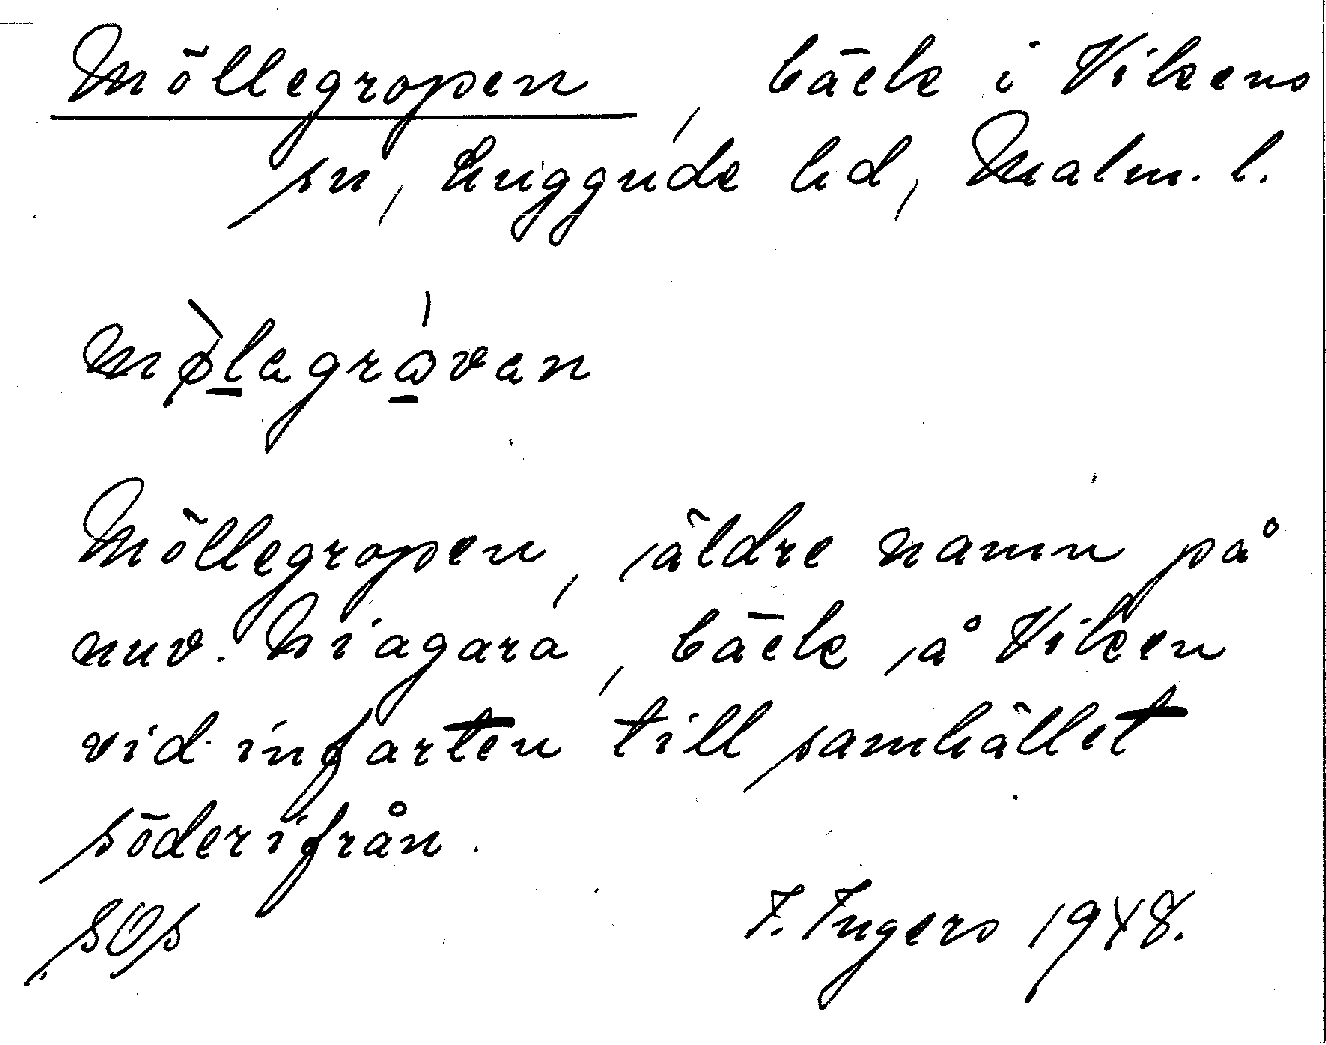 Möllegropen, bäck i Vikens
sn, Luggude hd, Malm. l.
mø̀lagrávan
Möllegropen, äldre namn på
nuv. Niagara, bäck å Viken
vid infarten till samhället
söderifrån.
I. Ingers 1948.